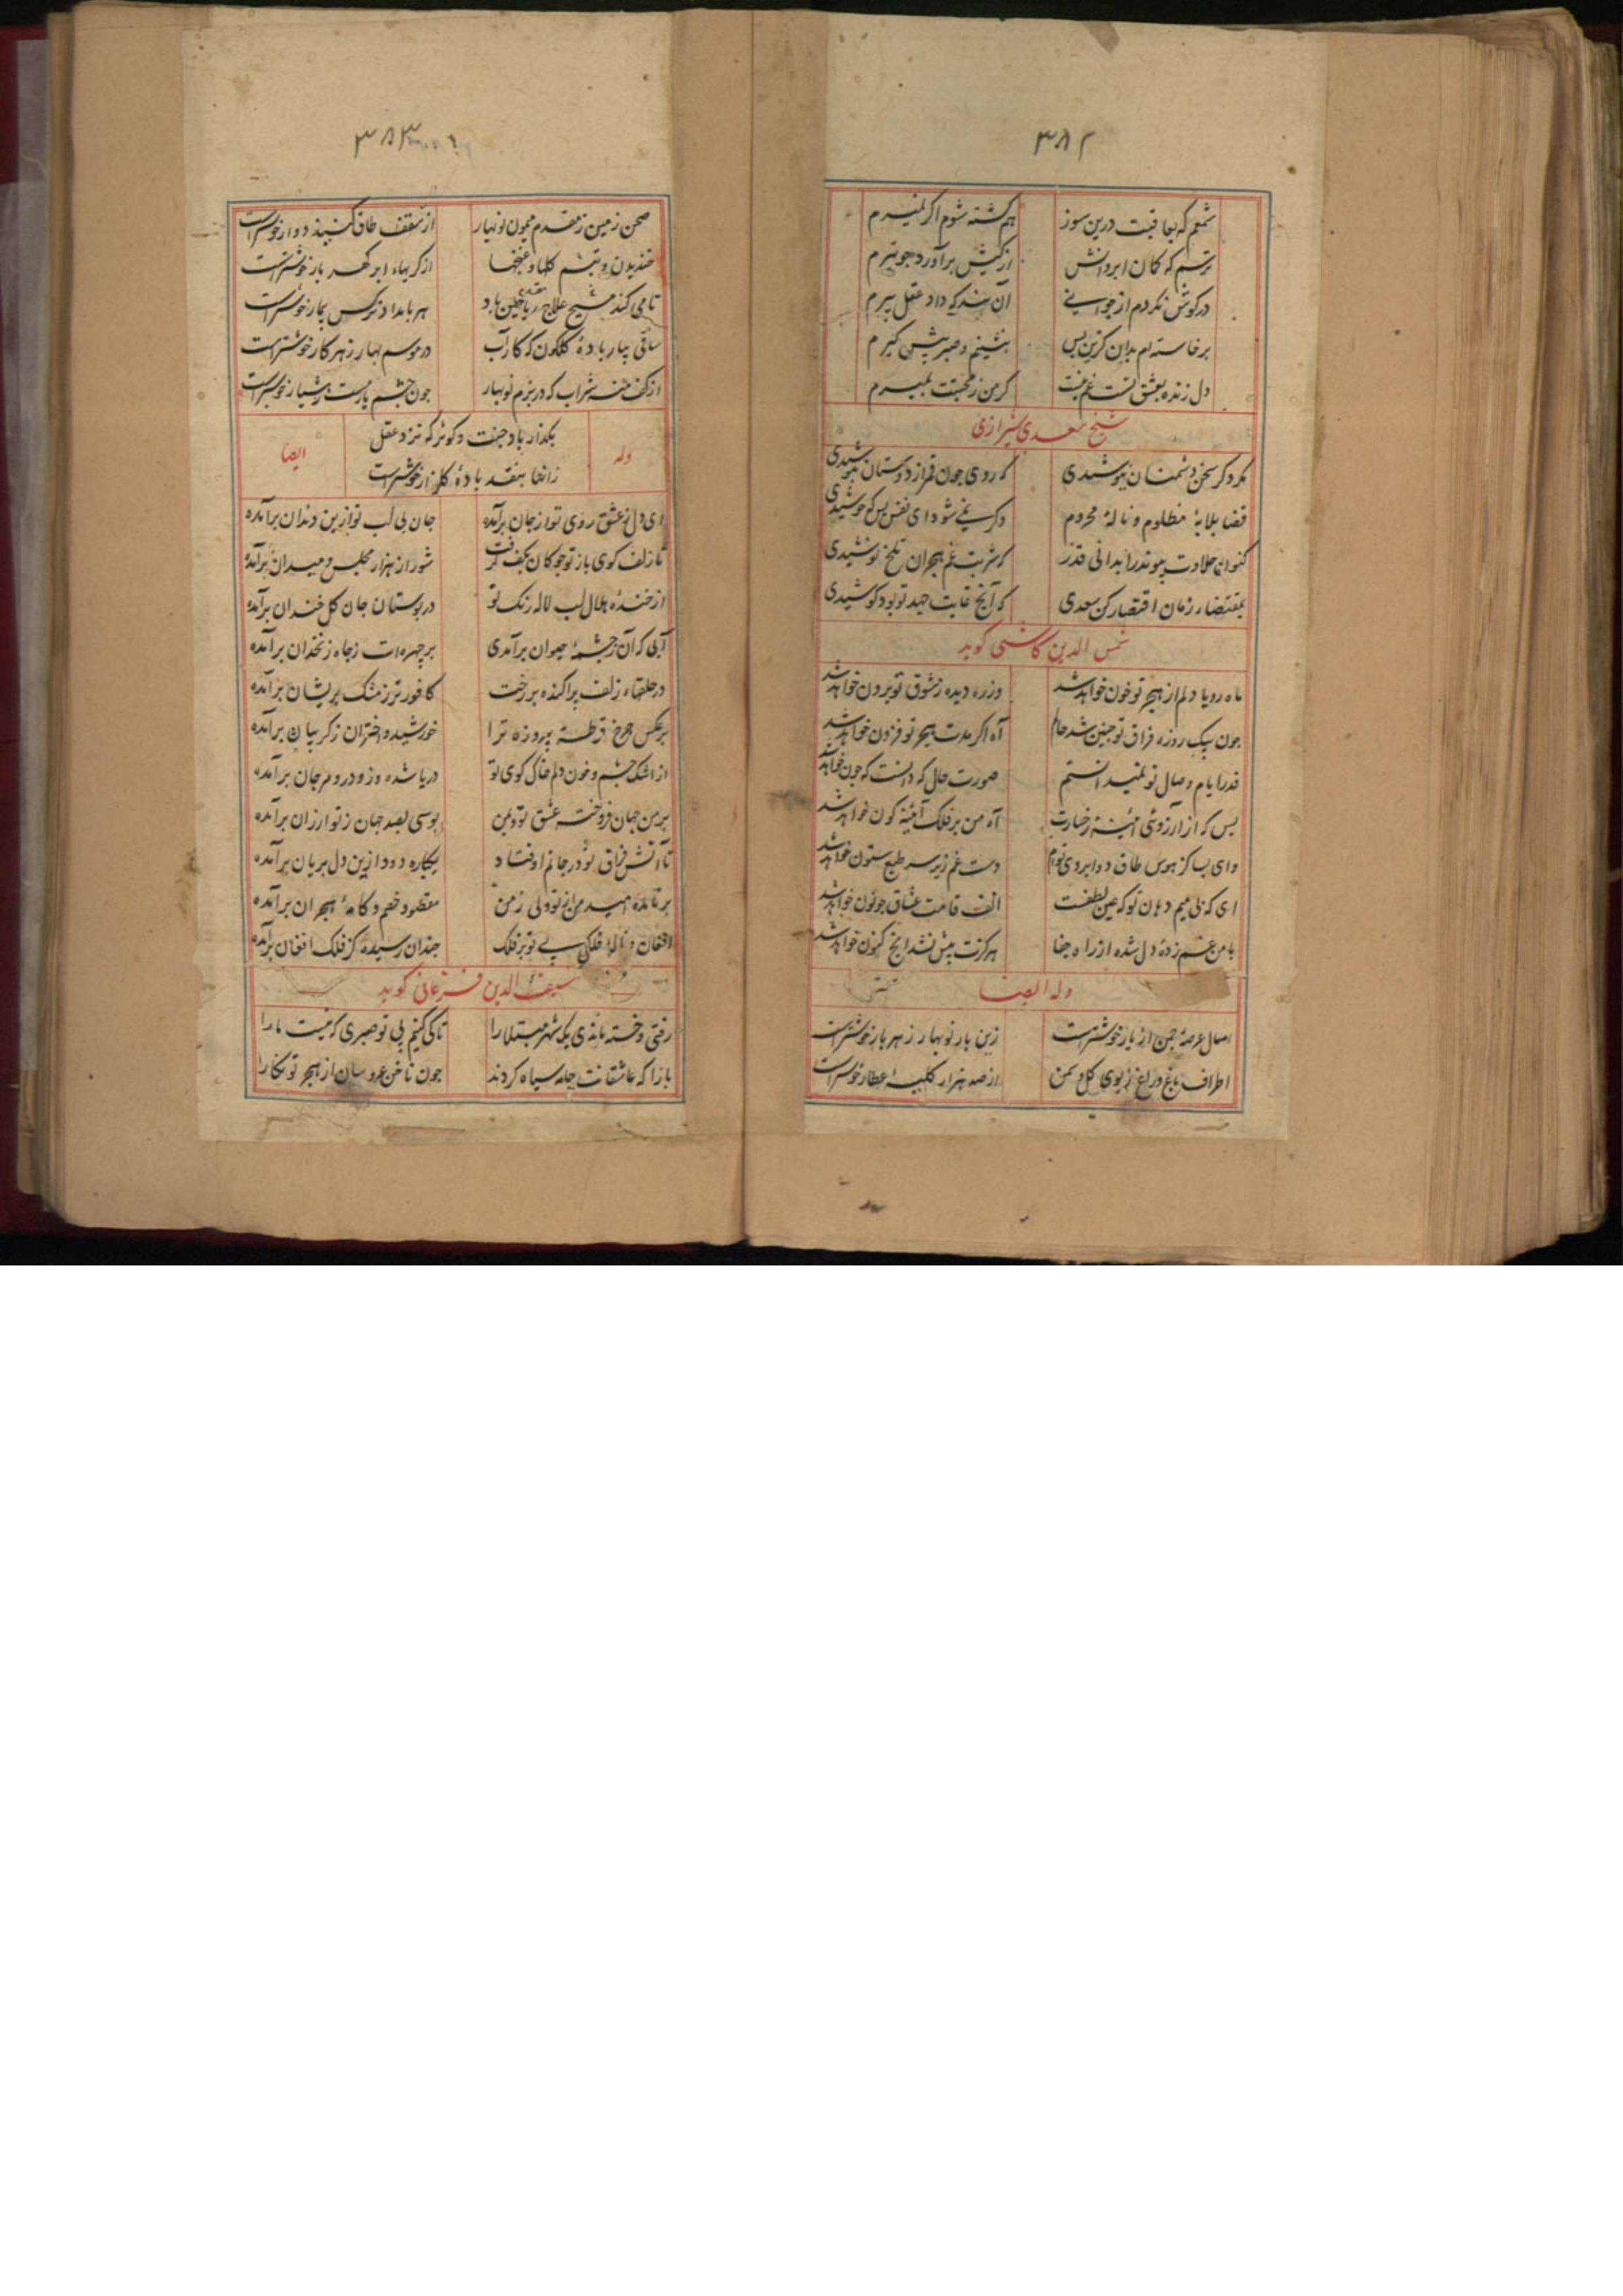 ۳۸۲
شمعم که بعاقبت درین سوز هم کشته شوم اکر نمیرم
ترسم که کمان ابروانش از کیش برآورد جو تیرم
در کوش نکردم از جوانی آن بند که داد عقل پیرم
برخاسته ام بدان کزین پس بنشینم و صبر پیش کیرم
دل زنده بعشق تست غم نیست کر من ز محبتت بمیرم
شیخ سعدی شیرازی
مکر دکر سخن دشمنان نیوشیدی که روی جون قمر از دوستان بپوشیدی
قضا بلابهٔ مظلوم و نالهٔ محروم دکر نمی شود ای نفس بس که جوشیدی
کنون حلاوت پیوند را بدانی قدر که شربت غم هجران تلخ نوشیدی
بمقتضاء زمان اقتصار کن سعدی که آنج غایت جهد تو بود کوشیدی
شمس الدین کاشی کوید
ماه رویا دلم از هجر تو خون خواهد شد وز ره دیده ز شوق تو برون خواهد شد
جون بیک روزه فراق تو جنین شد حالم آه اکر مدت هجر تو فزون خواهد شد
قدر ایام وصال تو نمیدانستم صورت حال که دانست که جون خواهد شد
بس که از آرزوی آئینهٔ رخسارت آه من بر فلک آینه کون خواهد شد
وای بسا کز هوس طاق دو ابروی توام دست غم زیر سر طبع ستون خواهد شد
ای که بی میم دهان تو که عین لطفست الف قامت عشاق جو نون خواهد شد
با من غم زدهٔ دل شده از راه جفا هرکزت بیش نشد اینج کنون خواهد شد
وله ایضا
امسال عرصهٔ جمن از پار خوشترست زین بار نوبهار ز هر بار خوشترست
اطراف باغ و راغ ز بوی کل و سمن از صد هزار کلبهٔ عطار خوشترست
۳۸۳
صحن زمین ز مقدم میمون نوبهار از سقف طاق کنبذ دوار خوشترست
خندیدن و تبسم کلها و غنچها از کریهاء ابر کهر بار خوشترست
تا می کند مسیح علاج باد هر بامداد نرکس بیمار خوشترست
ساقی بیار بادهٔ کلکون که کار آب در موسم بهار ز هر کار خوشترست
از کف منه شراب که در بزم نوبهار جون جشم یار مست ز هشیار خوشترست
وله بکذار یاد جنت و کوثر که نزد عقل ایضا
زانها بنقد بادهٔ کلنار خوشترست
ای دل ز عشق روی تو از جان برآمده جان بی لب تو از بن دندان برآمده
تا زلف کوی باز تو جوکان بکف کرفت شور از هزار مجلس و میدان برآمده
از خندهٔ لب لاله رنک تو در بوستان جان کل خندان برآمده
آبی که آن ز جشمهٔ حیوان برآمدی بر چهره‌ات ز جاه زنخدان برآمده
در حلقهاء زلف پراکنده بر رخت کافور تر ز مشک پریشان برآمده
برعکس جرخ قرطهٔ پیروزه ترا خورشید و اختران ز کریبان برآمده
از اشک جشم و خون دلم خاک کوی تو دریا شده وزو در و مرجان برآمده
بر من جهان فروخته عشق تو بوسی بصد جهان ز تو ارزان برآمده
تا آتش فراق تو در جانم اوفتاد یکباره دود ازین دل بریان برآمده
برنامده امید من از تو ولی ز من مقصود خصم و کامهٔ هجران برآمده
افغان و نالهٔ فلکی بی تو بر فلک جندان رسیده کز فلک افغان برآمده
سیف الدین فرغانی کوید
رفتی و خسته ماندی یک شهر مبتلا را تا کی کنیم بی تو صبری که نیست ما را
بازا که عاشقانت جامه سیاه کردند جون ناخن عروسان از هجر تو نکارا